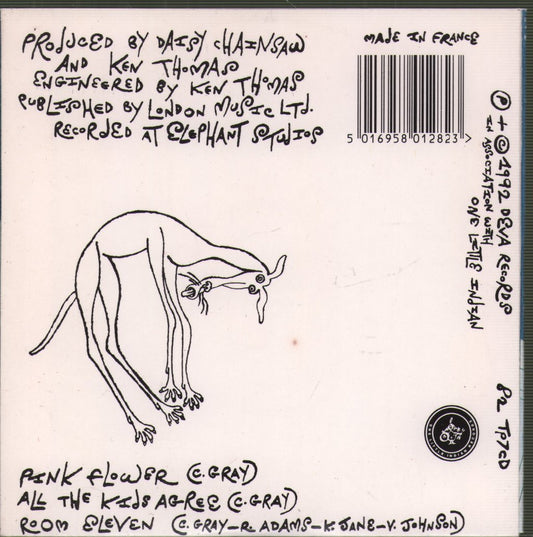 PRODUCED BY DAISY CHAINSAW
AND KEN THOMAS
ENGINEERED BY KEN THOMAS
PUBLISHED BY LONDON MUSIC LTD.
RECORDED AT ELEPHANT STUDIOS
MADE IN FRANCE
5 016958 012823 >
℗ + © 1992 DEVA RECORDS
IN ASSOCIATION WITH
ONE LITTLE INDIAN
82 TP7CD
PINK FLOWER (C. GRAY)
ALL THE KIDS AGREE (C. GRAY)
ROOM ELEVEN (C. GRAY-R. ADAMS-K. JANE-V. JOHNSON)